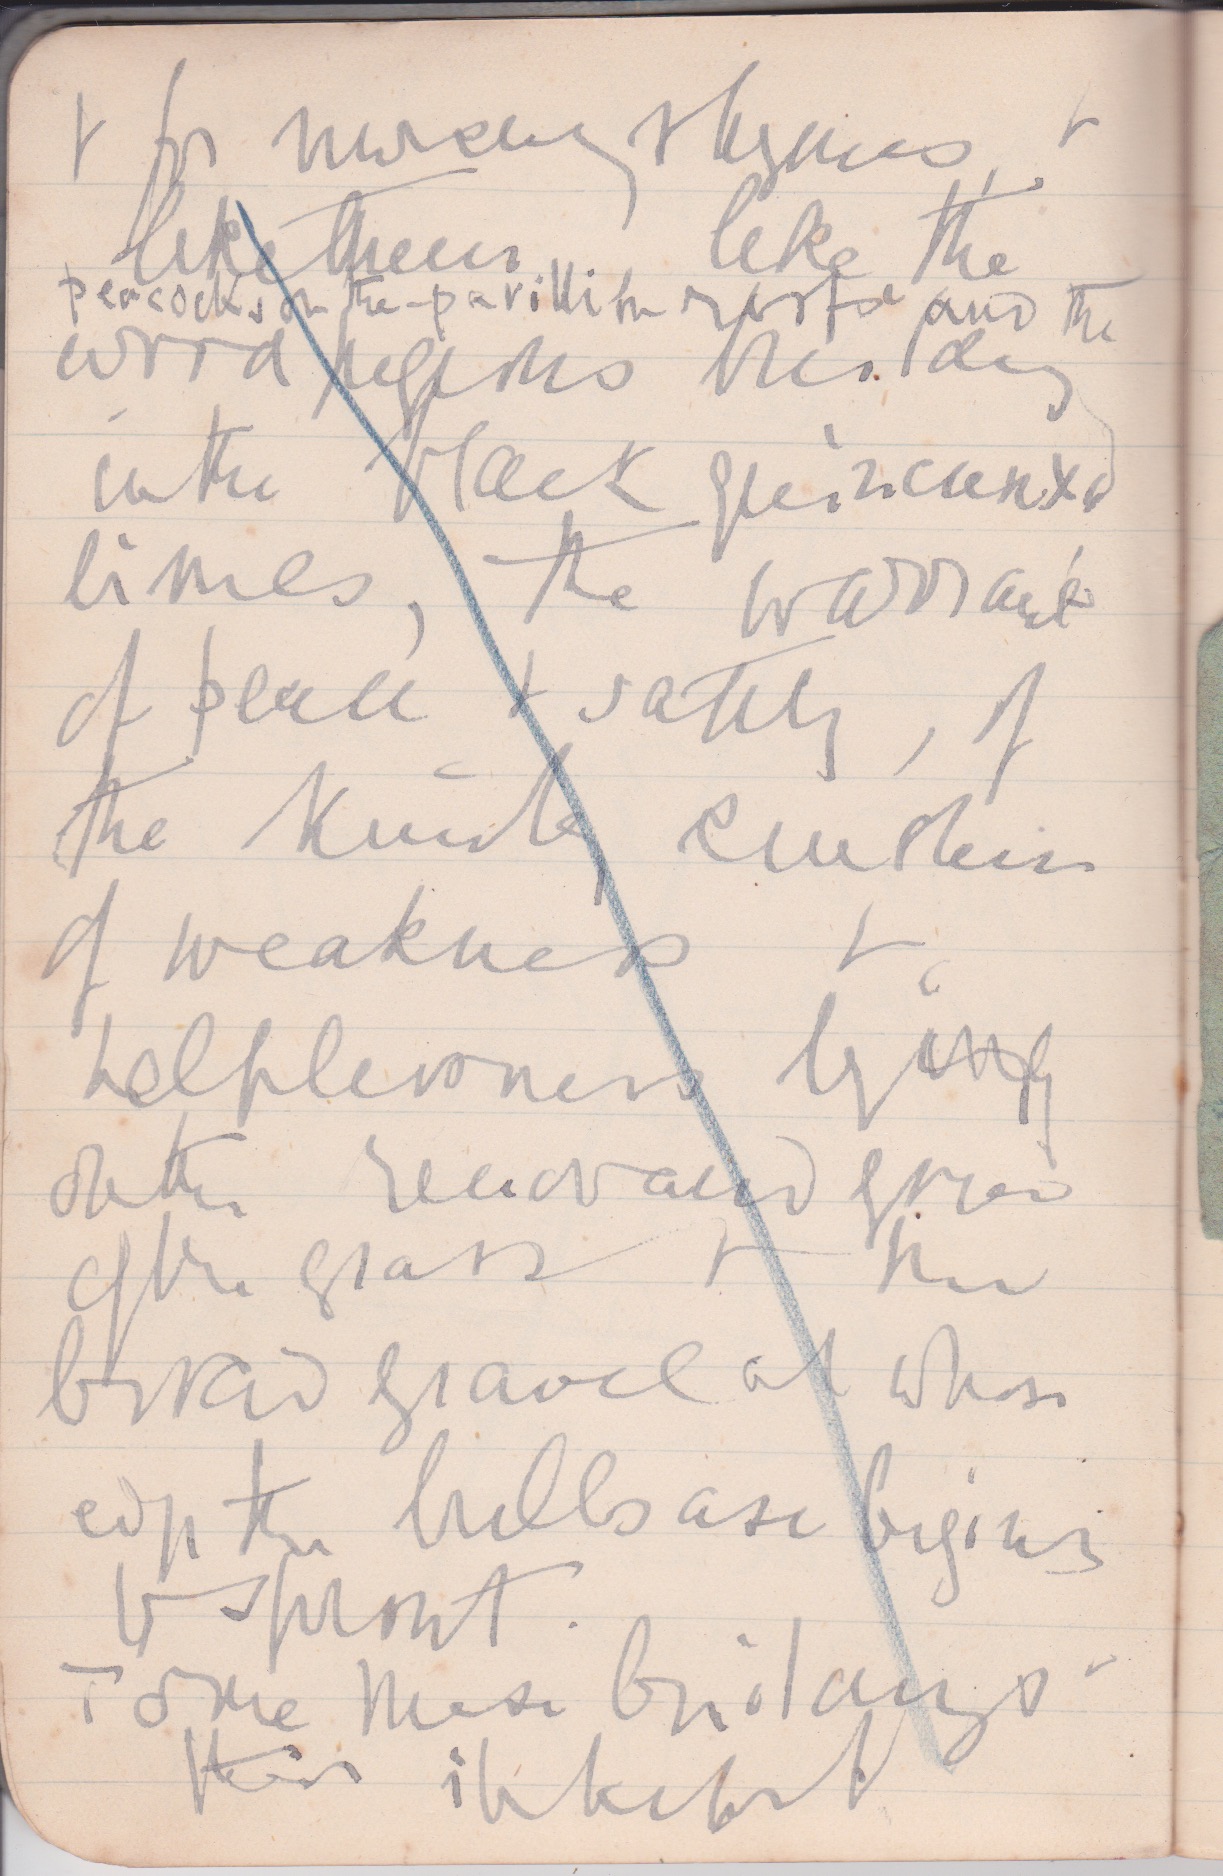 + for nursery rhymes, +
like them like the
peacocks on the pavillion roofs and the
wood pigeons building
in the black quincunxed
limes, the warrant
of peace & safety, of
the kindly
of weakness &
helplessness lying
on the renovated green
of the grass & the
broad gravel at whose
edge the bulbs are beginning
to sprout.
To me these buildings
this